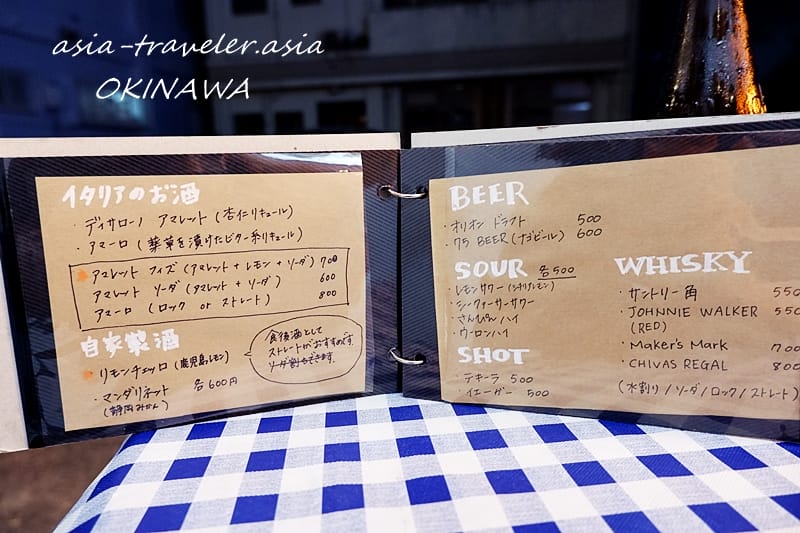 asia-traveler.asia
OKINAWA
イタリアのお酒
・ディサローノ アマレット (杏仁リキュール)
・アマーロ (薬草を漬けたビター系リキュール)
アマレット フィズ (アマレット + レモン + ソーダ) 700
アマレット ソーダ (アマレット + ソーダ) 600
アマーロ (ロック or ストレート) 800
自家製酒
・リモンチェッロ (鹿児島レモン)
・マンダリネット 各600円
(静岡みかん)
食後酒として
ストレートがおすすめです。
ソーダ割もできます。
BEER
・オリオン ドラフト 500
・75 BEER (ナゴビール) 600
SOUR 各500
・レモンサワー
・シークァーサーサワー
・さんぴんハイ
・ウーロンハイ
SHOT
・テキーラ 500
・イエーガー 500
WHISKY
・サントリー角 550
・JOHNNIE WALKER 550
(RED)
・Maker's Mark 700
・CHIVAS REGAL 800
(水割り / ソーダ / ロック / ストレート)